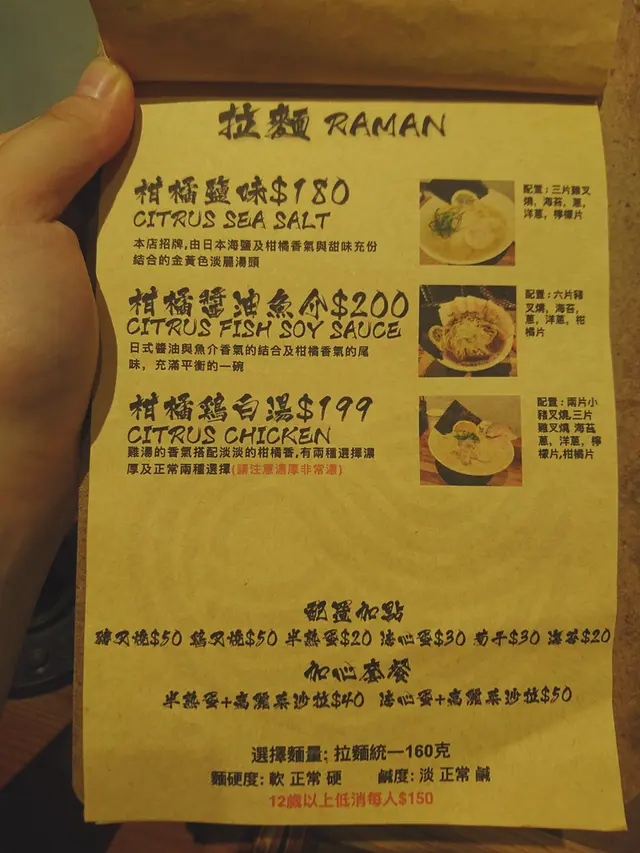 拉麵 RAMAN
柑橘鹽味$180
CITRUS SEA SALT
本店招牌,由日本海鹽及柑橘香氣與甜味充份
結合的金黃色淡麗湯頭
配置：三片雞叉
燒, 海苔, 蔥,
洋蔥, 檸檬片
柑橘醬油魚介$200
CITRUS FISH SOY SAUCE
日式醬油與魚介香氣的結合及柑橘香氣的尾
味，充滿平衡的一碗
配置：六片豬
叉燒，海苔，
蔥，洋蔥，柑
橘片
柑橘鷄白湯$199
CITRUS CHICKEN
雞湯的香氣搭配淡淡的柑橘香,有兩種選擇濃
厚及正常兩種選擇(請注意濃厚非常濃)
配置：兩片小
豬叉燒,三片
雞叉燒 海苔
蔥，洋蔥，檸
檬片,柑橘片
配置加點
豬叉燒$50 鷄叉燒$50 半熟蛋$20 溏心蛋$30 筍干$30 海苔$20
加心套餐
半熟蛋+高麗菜沙拉$40 溏心蛋+高麗菜沙拉$50
選擇麵量: 拉麵統一160克
麵硬度: 軟 正常 硬 鹹度: 淡 正常 鹹
12歲以上低消每人$150